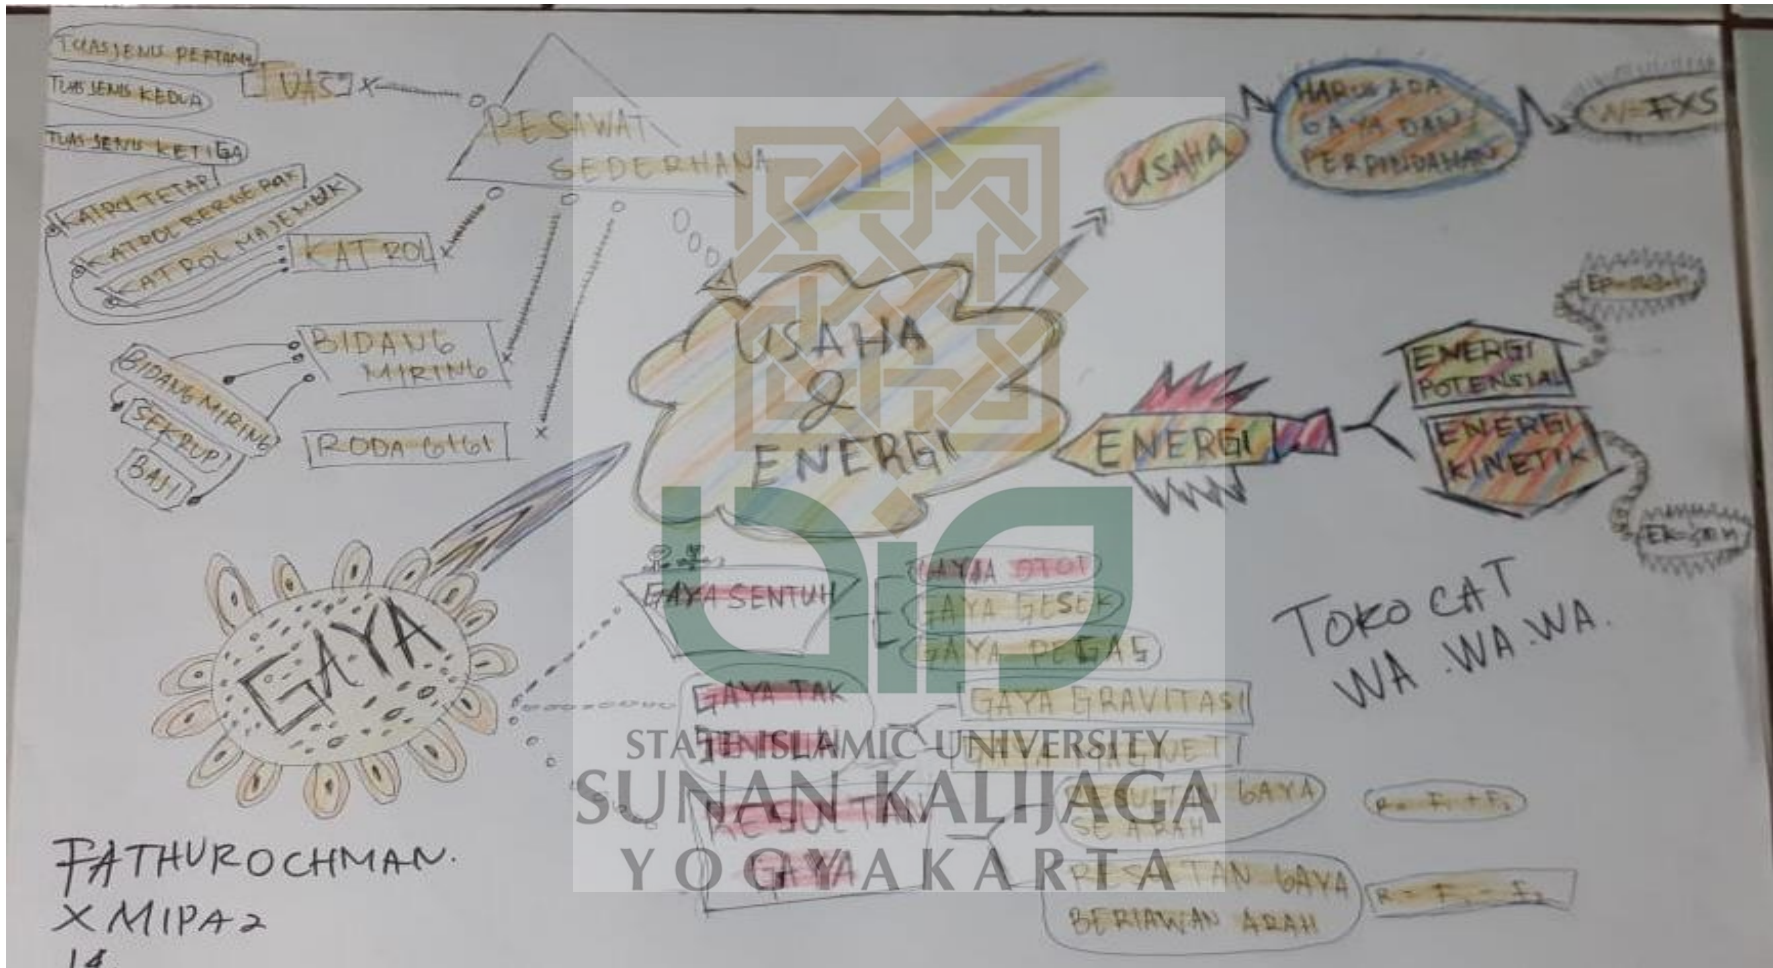 TUAS JENIS PERTAMA
TUAS JENIS KEDUA
TUAS JENIS KETIGA
TUAS
PESAWAT
SEDERHANA
KATROL TETAP
KATROL BERGERAK
KATROL MAJEMUK
KATROL
BIDANG
MIRING
BIDANG MIRING
SEKRUP
BAJI
RODA GIGI
USAHA
&
ENERGI
USAHA
HARUS ADA
GAYA DAN
PERPINDAHAN
W=FXS
ENERGI
ENERGI
POTENSIAL
ENERGI
KINETIK
GAYA
GAYA SENTUH
GAYA OTOT
GAYA GESEK
GAYA PEGAS
GAYA TAK
SENTUH
GAYA GRAVITASI
GAYA MAGNET
RESULTAN
GAYA
RESULTAN GAYA
SEARAH
R = F1 + F2
RESULTAN GAYA
BERLAWAN ARAH
R = F1 - F2
TOKO CAT
WA.WA.WA.
FATHUROCHMAN.
X MIPA 2
14
STATE ISLAMIC UNIVERSITY
SUNAN KALIJAGA
YOGYAKARTA